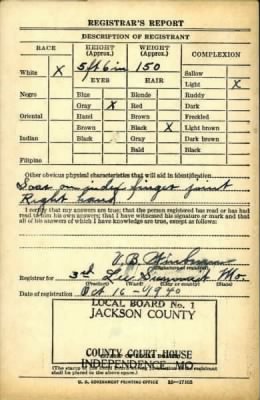 REGISTRAR'S REPORT
DESCRIPTION OF REGISTRANT
RACE HEIGHT (Approx.) WEIGHT (Approx.) COMPLEXION
White X 5 ft 6 in 150 Sallow
EYES HAIR Light X
Negro Blue Blonde Ruddy
Gray X Red Dark
Oriental Hazel Brown Freckled
Brown Black X Light brown
Indian Black Gray Dark brown
Bald Black
Filipino
Other obvious physical characteristics that will aid in identification
Scar on index finger joint
Right hand
I certify that my answers are true; that the person registered has read or has had
read to him his own answers; that I have witnessed his signature or mark and that
all of his answers of which I have knowledge are true, except as follows:
V. B.
Registrar for 3rd Lee Summit Mo.
(Precinct) (Ward) (City or county) (State)
Date of registration Oct 16 - 1940
LOCAL BOARD No. 1
JACKSON COUNTY
COUNTY COURT HOUSE
INDEPENDENCE, MO.
(The stamp of the Local Board having jurisdiction of the registrant
shall be placed in the above space.)
U. S. GOVERNMENT PRINTING OFFICE